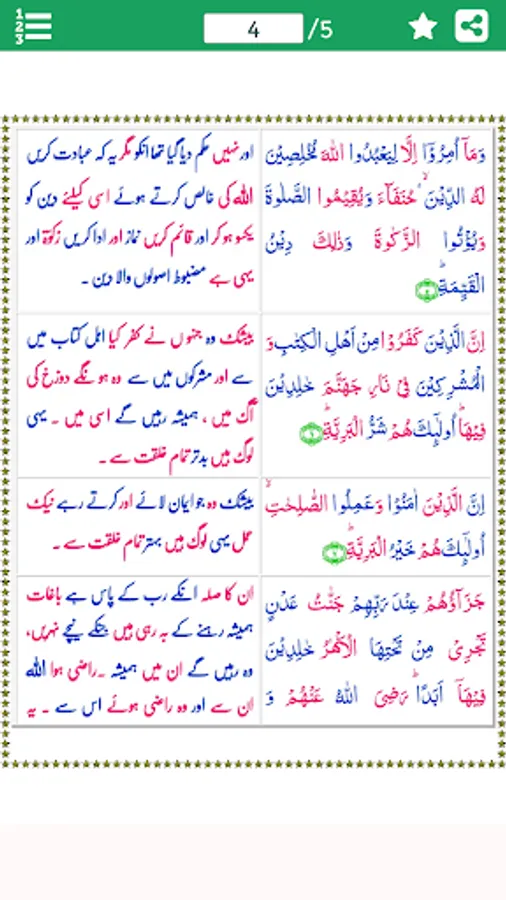 1
2
3
4 /5
وَمَآ اُمِرُوْٓا اِلَّا لِيَعْبُدُوا اللّٰهَ مُخْلِصِيْنَ
لَهُ الدِّيْنَ ۙ حُنَفَآءَ وَيُقِيْمُوا الصَّلٰوةَ
وَيُؤْتُوا الزَّكٰوةَ وَذٰلِكَ دِيْنُ
الْقَيِّمَةِ ؕ ۵
اور نہیں حکم دیا گیا تھا انکو مگر یہ کہ عبادت کریں
اللّٰہ کی خالص کرتے ہوئے اسی کیلئے دین کو
یکسو ہو کر اور قائم کریں نماز اور ادا کریں زکوٰۃ اور
یہی ہے مضبوط اصولوں والا دین ۔
اِنَّ الَّذِيْنَ كَفَرُوْا مِنْ اَهْلِ الْكِتٰبِ وَ
الْمُشْرِكِيْنَ فِىْ نَارِ جَهَنَّمَ خٰلِدِيْنَ
فِيْهَا ؕ اُولٰٓئِكَ هُمْ شَرُّ الْبَرِيَّةِ ؕ ۶
بیشک وہ جنہوں نے کفر کیا اہل کتاب میں
سے اور مشرکوں میں سے وہ ہونگے دوزخ کی
آگ میں ، ہمیشہ رہیں گے اسی میں ۔ یہی
لوگ ہیں بدتر تمام خلقت سے ۔
اِنَّ الَّذِيْنَ اٰمَنُوْا وَعَمِلُوا الصّٰلِحٰتِ ۙ
اُولٰٓئِكَ هُمْ خَيْرُ الْبَرِيَّةِ ؕ ۷
بیشک وہ جو ایمان لائے اور کرتے رہے نیک
عمل یہی لوگ ہیں بہتر تمام خلقت سے ۔
جَزَآؤُهُمْ عِنْدَ رَبِّهِمْ جَنّٰتُ عَدْنٍ
تَجْرِىْ مِنْ تَحْتِهَا الْاَنْهٰرُ خٰلِدِيْنَ
فِيْهَآ اَبَدًا ؕ رَضِىَ اللّٰهُ عَنْهُمْ وَ
ان کا صلہ انکے رب کے پاس ہے باغات
ہمیشہ رہنے کے بہ رہی ہیں جنکے نیچے نہریں،
وہ رہیں گے ان میں ہمیشہ ۔ راضی ہوا اللّٰہ
ان سے اور وہ راضی ہوئے اس سے ۔ یہ